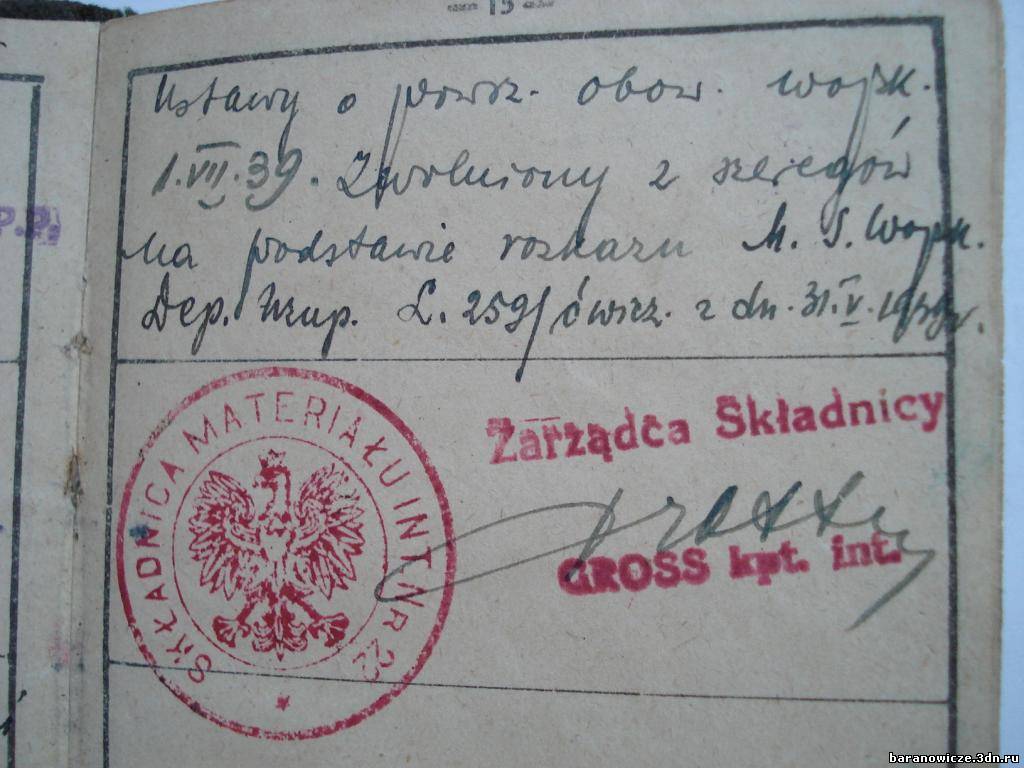 15
Ustawy o powsz. obow. wojsk.
1.VII.39. Zwolniony z szeregów
na podstawie rozkazu M. S. Wojsk.
Dep. Uzup. L. 259/ćwicz. z dn. 31.V.1939r.
SKŁADNICA MATERIAŁU INT. NR 22
Zarządca Składnicy
GROSS kpt. int.
baranowicze.3dn.ru